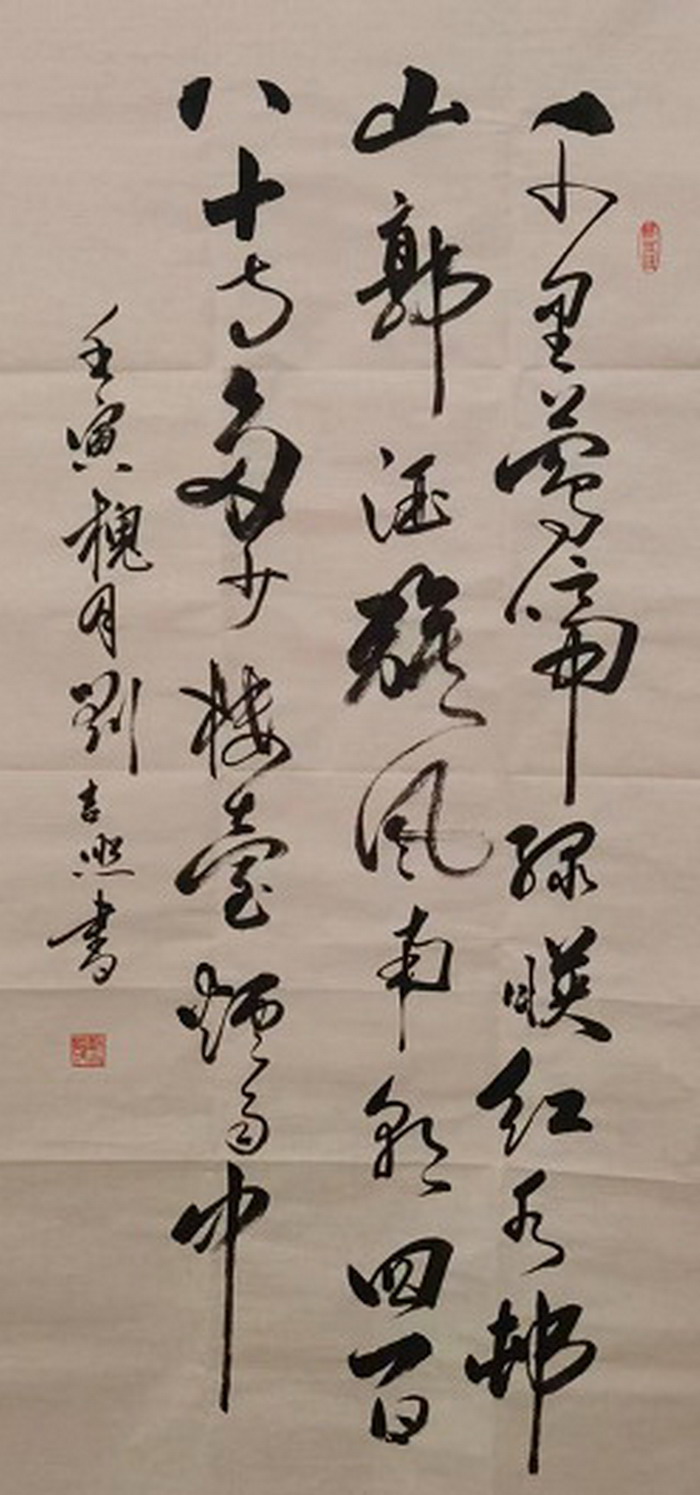 千里莺啼绿映红水邨
山郭酒旗风南朝四百
八十寺多少楼臺烟雨中
壬寅槐月劉吉熙書